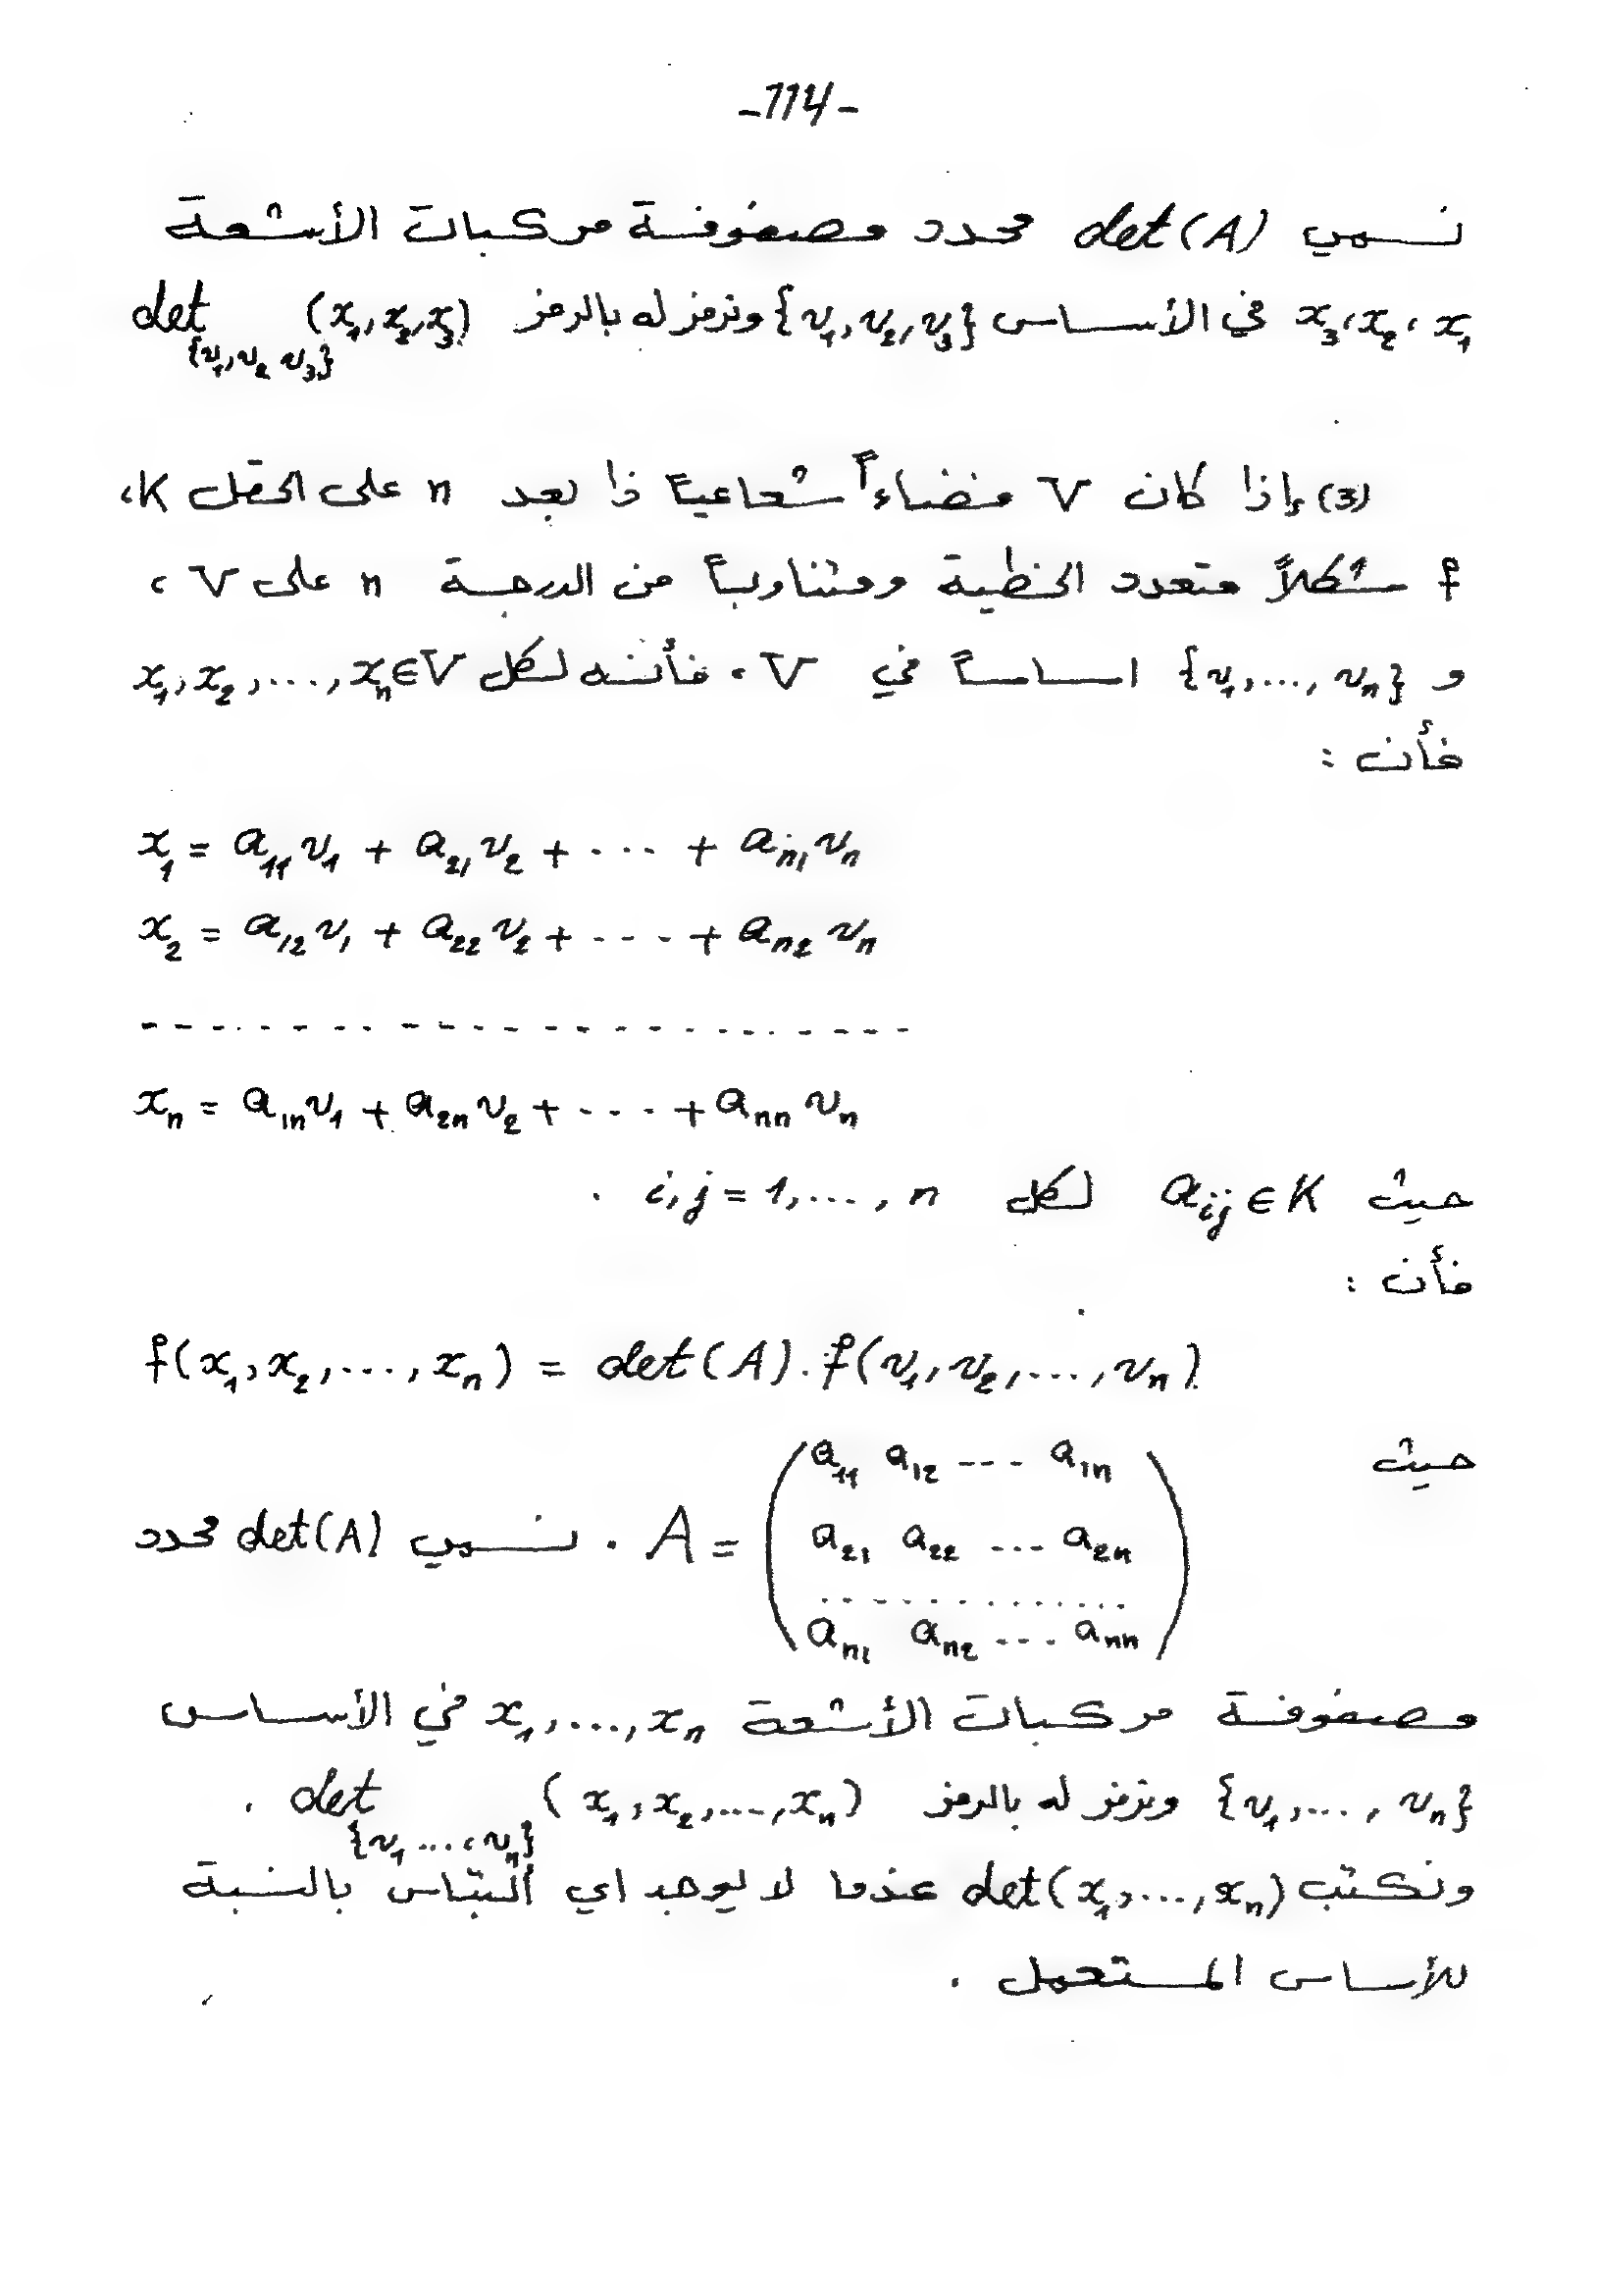 -114-
نسمي det(A) محدد مصفوفة مركبات الأشعة
x₁ ، x₂ ، x₃ في الأساس {v₁, v₂, v₃} ونرمز له بالرمز det_{v₁, v₂ v₃} (x₁, x₂, x₃)
(3) إذا كان V فضاءاً شعاعياً ذا بعد n على الحقل K،
f شكلاً متعدد الخطية ومتناوباً من الدرجة n على V ،
و {v₁, ..., vₙ} اساساً في V ، فأننه لكل x₁, x₂, ..., xₙ ∈ V
فأن :
x₁ = a₁₁ v₁ + a₂₁ v₂ + ... + aₙ₁ vₙ
x₂ = a₁₂ v₁ + a₂₂ v₂ + ---- + aₙ₂ vₙ
- - - - - - - - - - - - - - - - - - - - - -
xₙ = a₁ₙ v₁ + a₂ₙ v₂ + ---- + aₙₙ vₙ
حيث aᵢⱼ ∈ K لكل i, j = 1, ..., n .
فأن :
f(x₁, x₂, ..., xₙ) = det(A) . f(v₁, v₂, ..., vₙ)
حيث A = ( a₁₁ a₁₂ --- a₁ₙ
a₂₁ a₂₂ ... a₂ₙ
. . . . . . . . . . . . .
aₙ₁ aₙ₂ ---. aₙₙ ) . نسمي det(A) محدد
مصفوفة مركبات الأشعة x₁, ..., xₙ في الأساس
{v₁, ..., vₙ} ونرمز له بالرمز det_{v₁ ..., vₙ} (x₁, x₂, ..., xₙ) .
ونكتب det(x₁, ..., xₙ) عندما لا يوجد اي التباس بالنسبة
للأساس المستعمل .